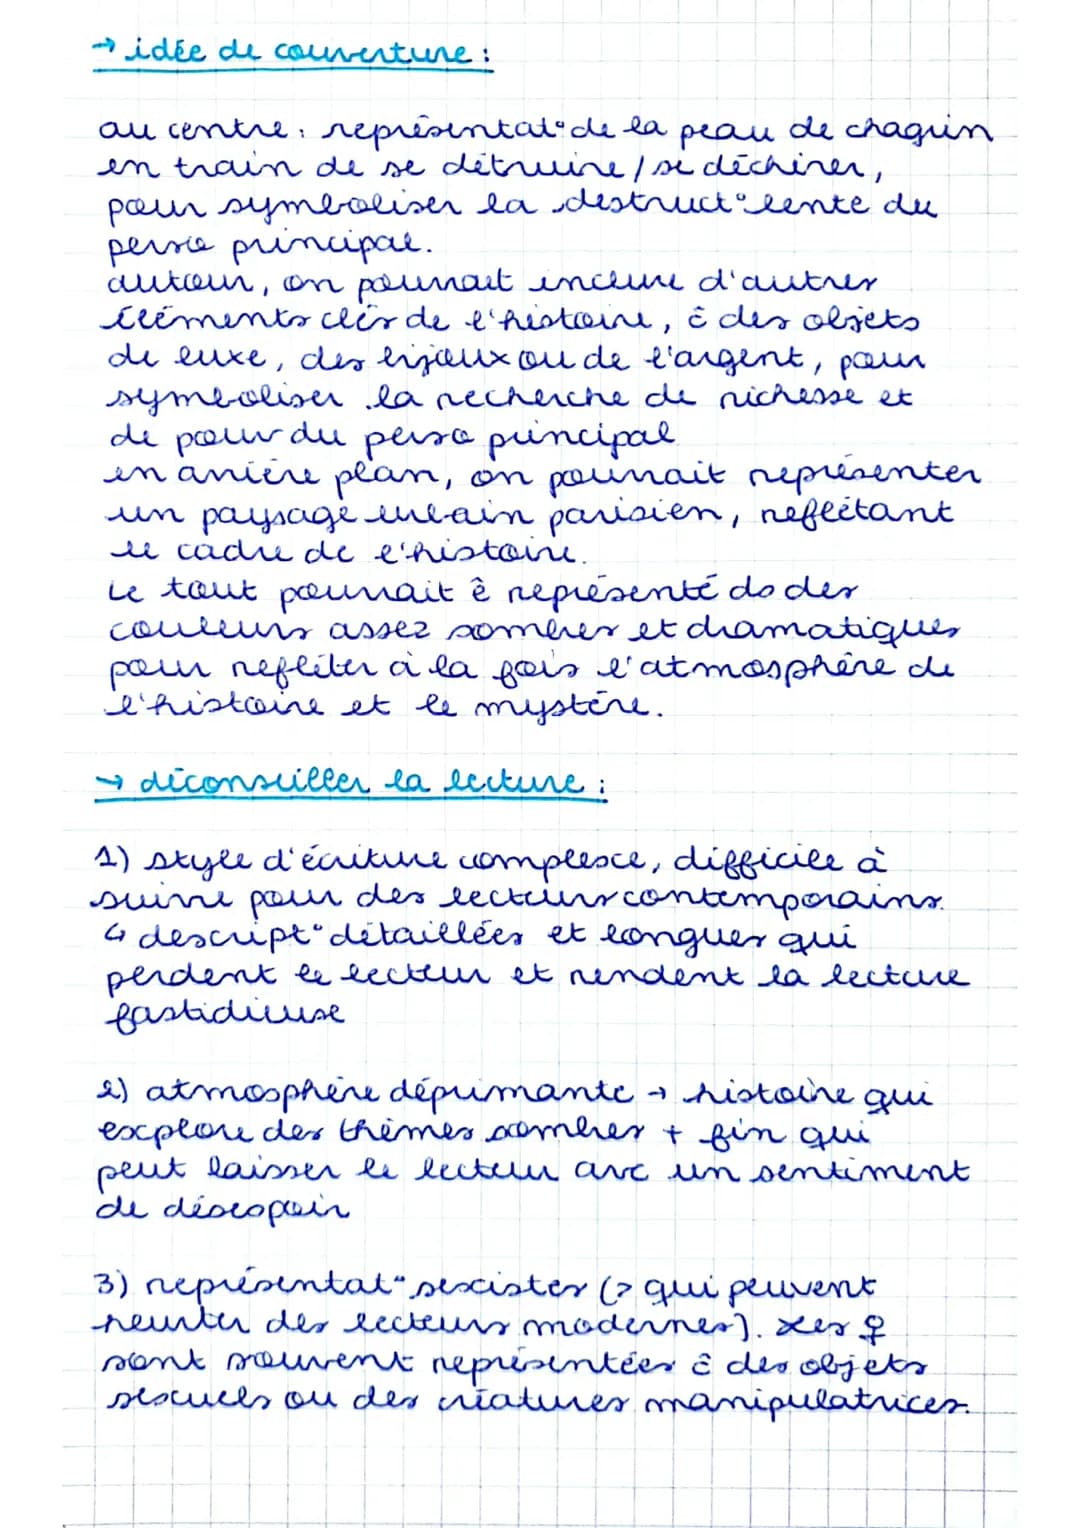 → idée de couverture :
au centre : représentat° de la peau de chagrin
en train de se détruire / se déchirer,
pour symboliser la destruct° lente du
perso principal.
autour, on pourrait inclure d'autres
éléments clés de l'histoire, ĉ des objets
de luxe, des bijoux ou de l'argent, pour
symboliser la recherche de richesse et
de pouv du perso principal
en arrière plan, on pourrait représenter
un paysage urbain parisien, reflétant
le cadre de l'histoire.
Le tout pourrait ê représenté ds des
couleurs assez sombres et dramatiques
pour refléter à la fois l'atmosphère de
l'histoire et le mystère.
→ déconseiller la lecture :
1) style d'écriture complexe, difficile à
suivre pour des lecteurs contemporains.
↳ descript° détaillées et longues qui
perdent le lecteur et rendent la lecture
fastidieuse
2) atmosphère déprimante → histoire qui
explore des thèmes sombres + fin qui
peut laisser le lecteur avc un sentiment
de désespoir
3) représentat° sexistes (> qui peuvent
heurter des lecteurs modernes). Les ♀
sont souvent représentées ĉ des objets
sexuels ou des créatures manipulatrices.